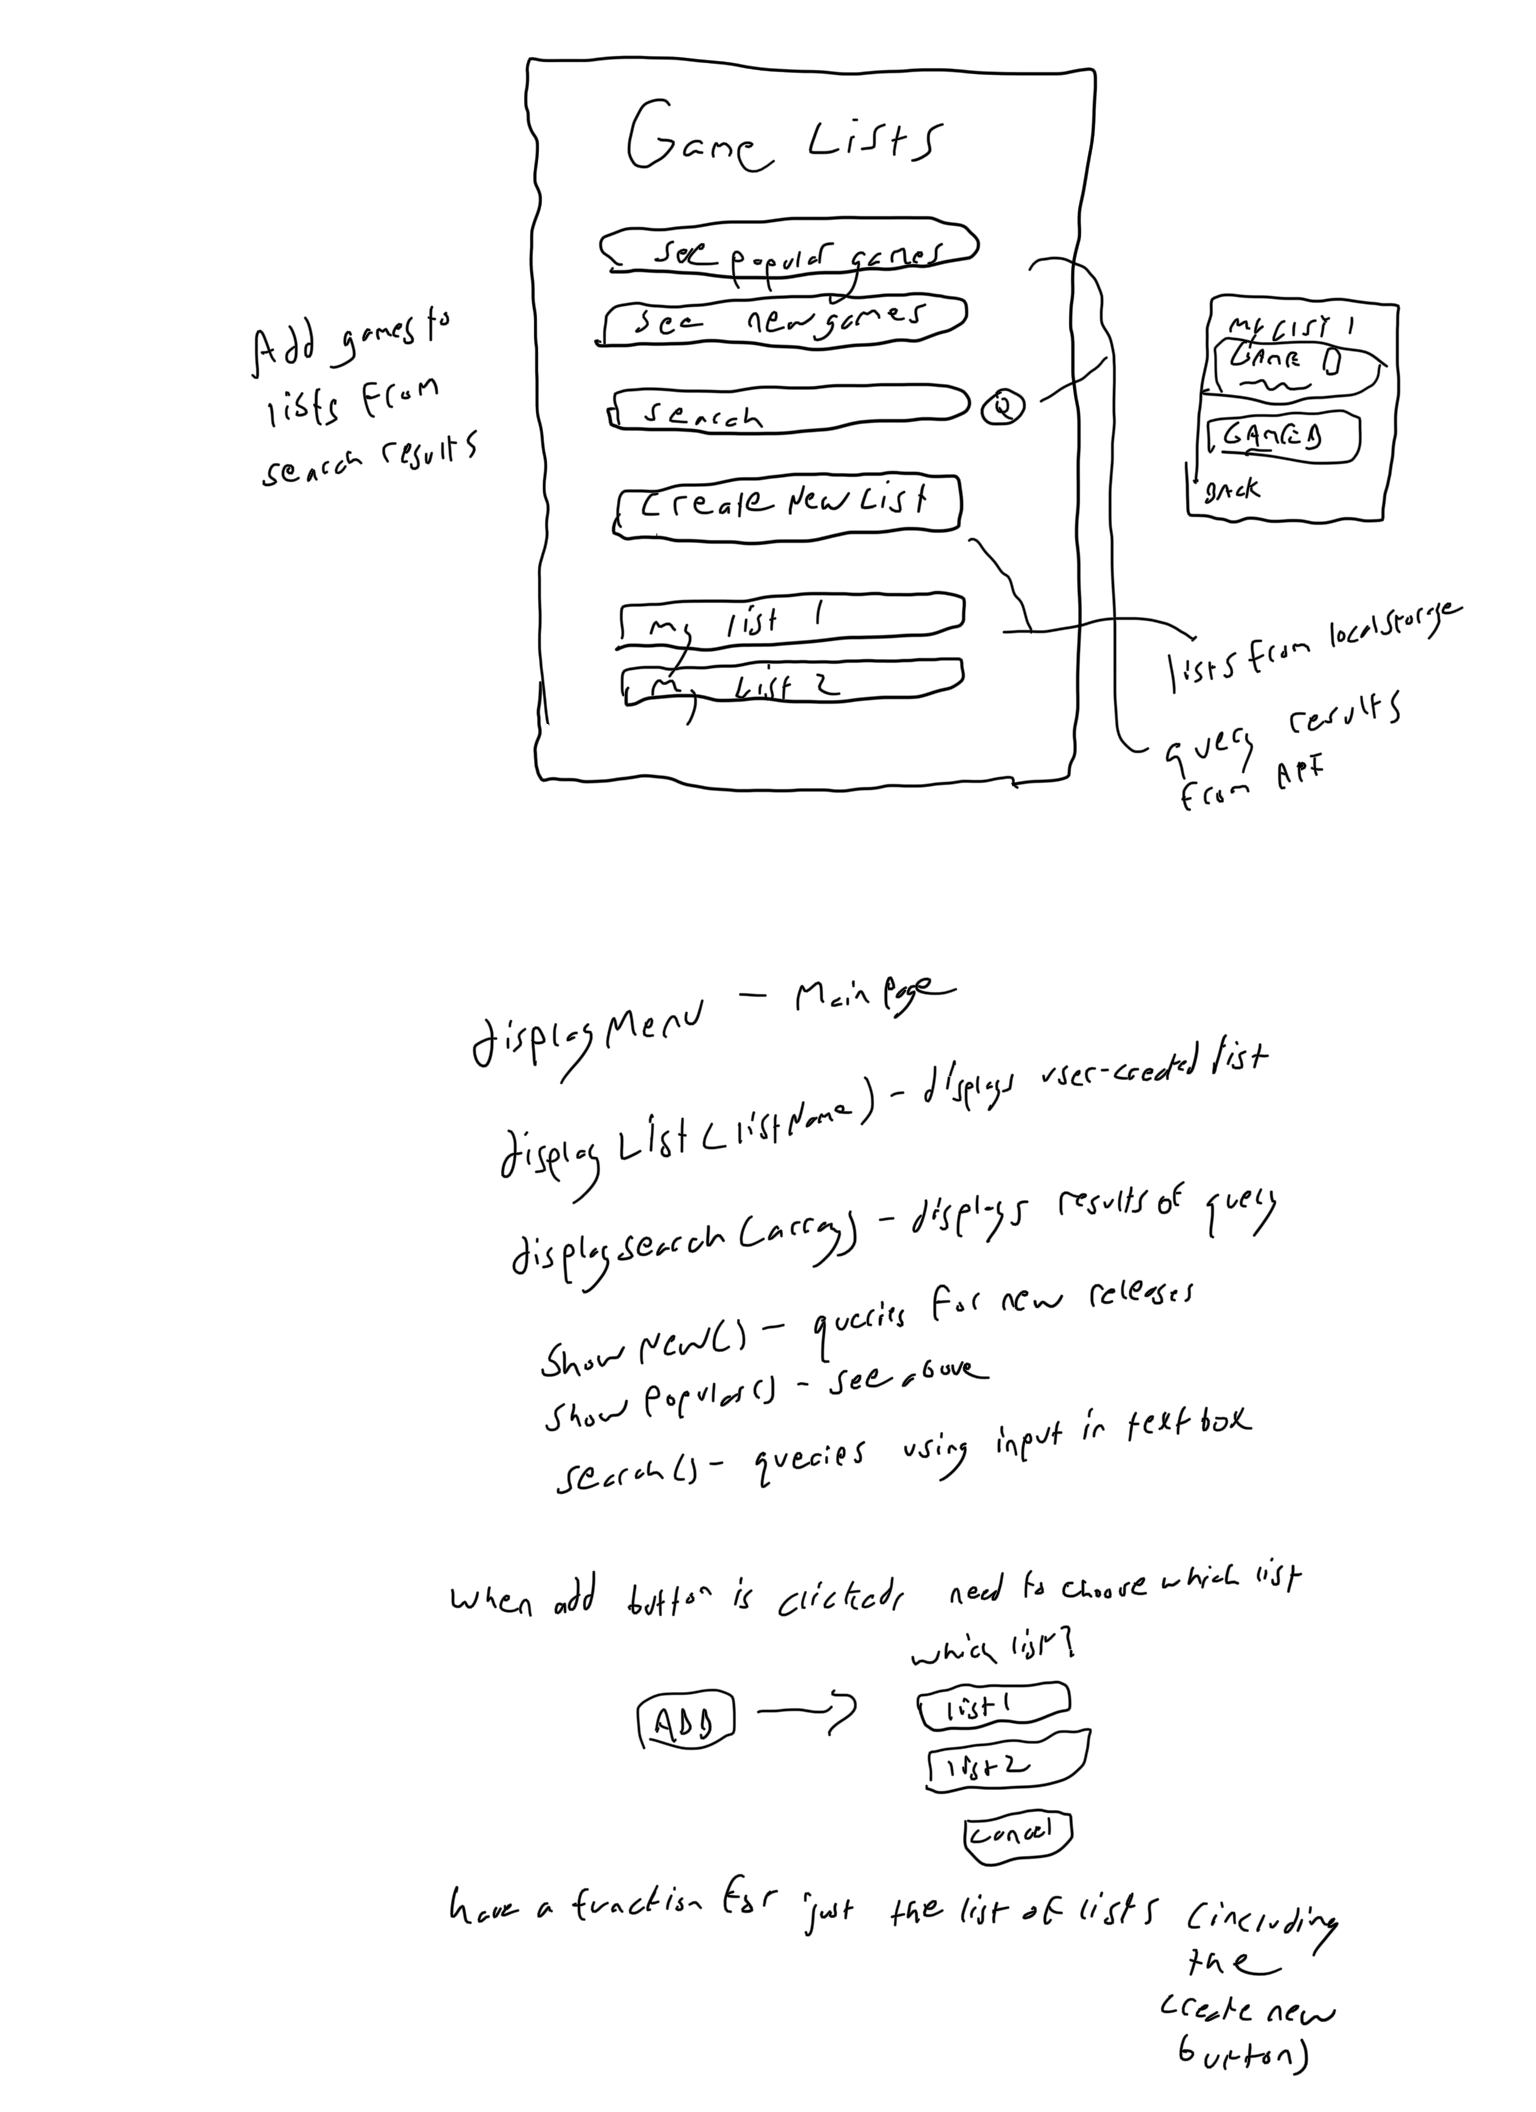 Game Lists
see popular games
see new games
search
Q
Create New List
my list 1
my List 2
Add games to
lists from
search results
MY LIST 1
GAME
GAME
BACK
lists from localstorage
query results
from API
displayMenu - Main Page
display List (listName) - displays user-created list
displaysearch (array) - displays results of query
Show New() - queries for new releases
Show Popular() - see above
search() - queries using input in textbox
when add button is clicked, need to choose which list
which list?
ADD
list 1
list 2
cancel
have a function for just the list of lists (including
the
create new
button)